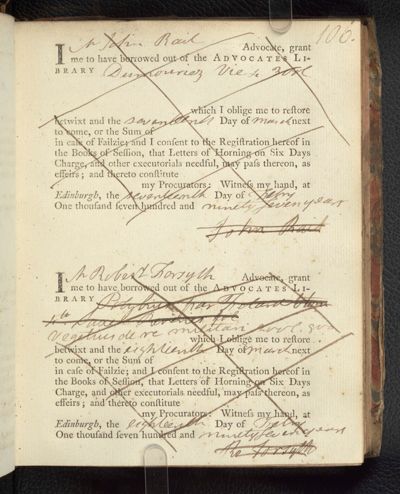 106.
I Mr John Rait Advocate, grant
me to have borrowed out of the ADVOCATES LI-
BRARY Dumouriez Vie 2 vol
which I oblige me to reſtore
betwixt and the seventeenth Day of March next
to come, or the Sum of
in caſe of Failzie; and I conſent to the Regiſtration hereof in
the Books of Seſſion, that Letters of Horning on Six Days
Charge, and other executorials needful, may paſs thereon, as
effeirs; and thereto conſtitute
my Procurators: Witneſs my hand, at
Edinburgh, the seventeenth Day of Febry
One thouſand ſeven hundred and ninety seven years
John Rait
I Mr Robert Forsyth Advocate, grant
me to have borrowed out of the ADVOCATES LI-
BRARY
Vegetius de re militari
which I oblige me to reſtore
betwixt and the eighteenth Day of March next
to come, or the Sum of
in caſe of Failzie; and I conſent to the Regiſtration hereof in
the Books of Seſſion, that Letters of Horning on Six Days
Charge, and other executorials needful, may paſs thereon, as
effeirs; and thereto conſtitute
my Procurators: Witneſs my hand, at
Edinburgh, the eighteenth Day of Febry
One thouſand ſeven hundred and ninety seven years
Ro Forsyth